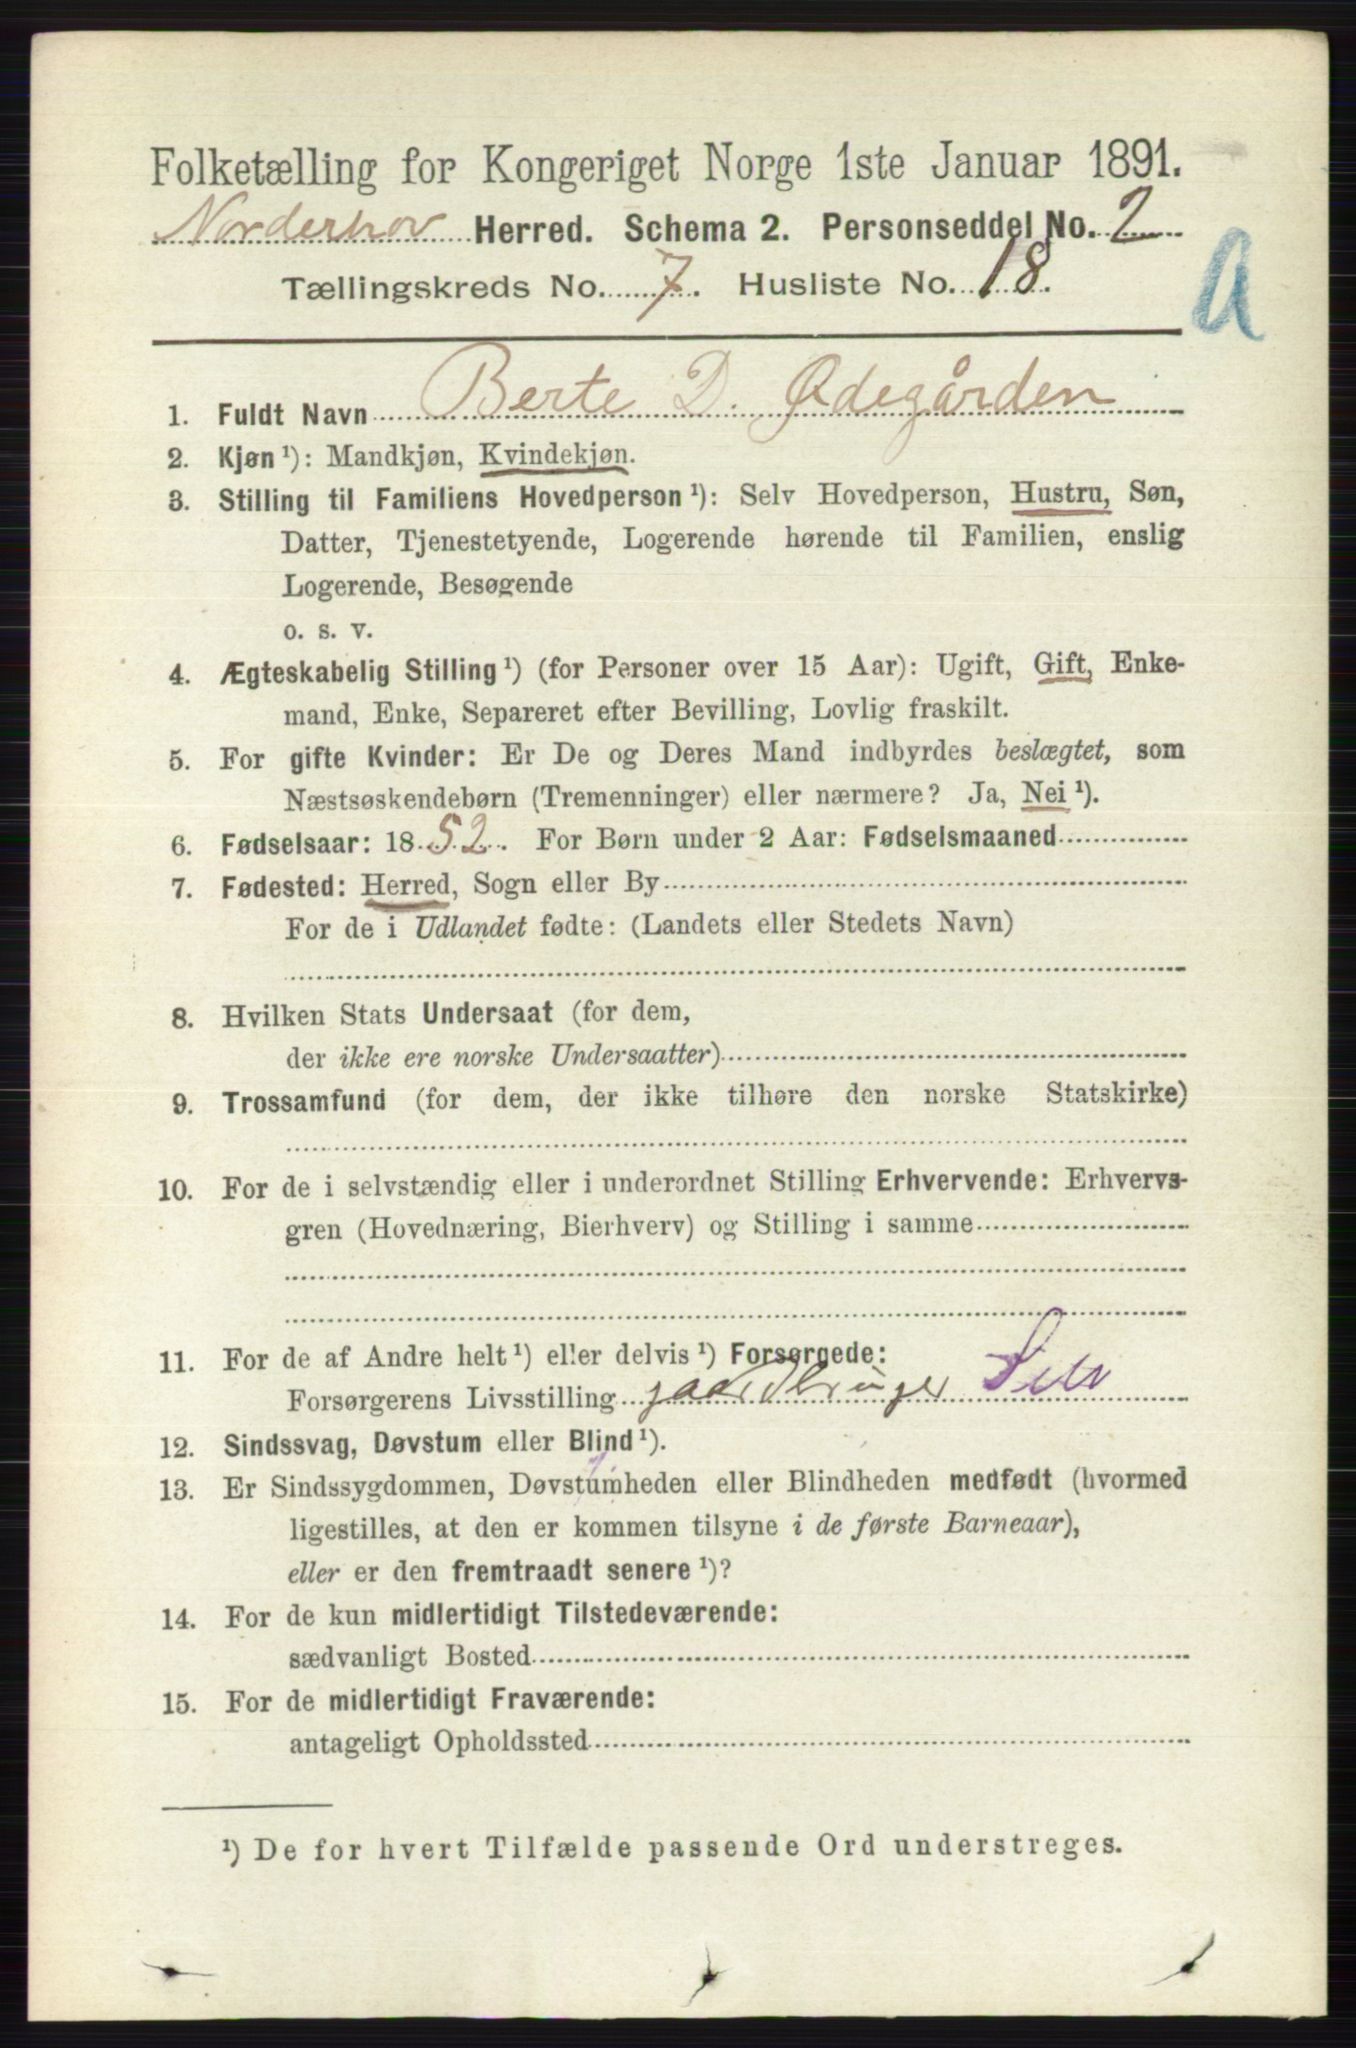 Folketælling for Kongeriget Norge 1ste Januar 1891.
Norderhov Herred. Schema 2. Personseddel No. 2
Tællingskreds No. 7. Husliste No. 18.
A
1. Fuldt Navn Berte D. Ødegården
2. Kjøn ¹): Mandkjøn, Kvindekjøn.
3. Stilling til Familiens Hovedperson ¹): Selv Hovedperson, Hustru, Søn,
Datter, Tjenestetyende, Logerende hørende til Familien, enslig
Logerende, Besøgende
o. s. v.
4. Ægteskabelig Stilling ¹) (for Personer over 15 Aar): Ugift, Gift, Enke-
mand, Enke, Separeret efter Bevilling, Lovlig fraskilt.
5. For gifte Kvinder: Er De og Deres Mand indbyrdes beslægtet, som
Næstsøskendebørn (Tremenninger) eller nærmere? Ja, Nei ¹).
6. Fødselsaar: 1852. For Børn under 2 Aar: Fødselsmaaned
7. Fødested: Herred, Sogn eller By
For de i Udlandet fødte: (Landets eller Stedets Navn)
8. Hvilken Stats Undersaat (for dem,
der ikke ere norske Undersaatter)
9. Trossamfund (for dem, der ikke tilhøre den norske Statskirke)
10. For de i selvstændig eller i underordnet Stilling Erhvervende: Erhvervs-
gren (Hovednæring, Bierhverv) og Stilling i samme
11. For de af Andre helt ¹) eller delvis ¹) Forsørgede:
Forsørgerens Livsstilling gaardbruger Selv
12. Sindssvag, Døvstum eller Blind ¹).
13. Er Sindssygdommen, Døvstumheden eller Blindheden medfødt (hvormed
ligestilles, at den er kommen tilsyne i de første Barneaar),
eller er den fremtraadt senere ¹)?
14. For de kun midlertidigt Tilstedeværende:
sædvanligt Bosted
15. For de midlertidigt Fraværende:
antageligt Opholdssted
¹) De for hvert Tilfælde passende Ord understreges.